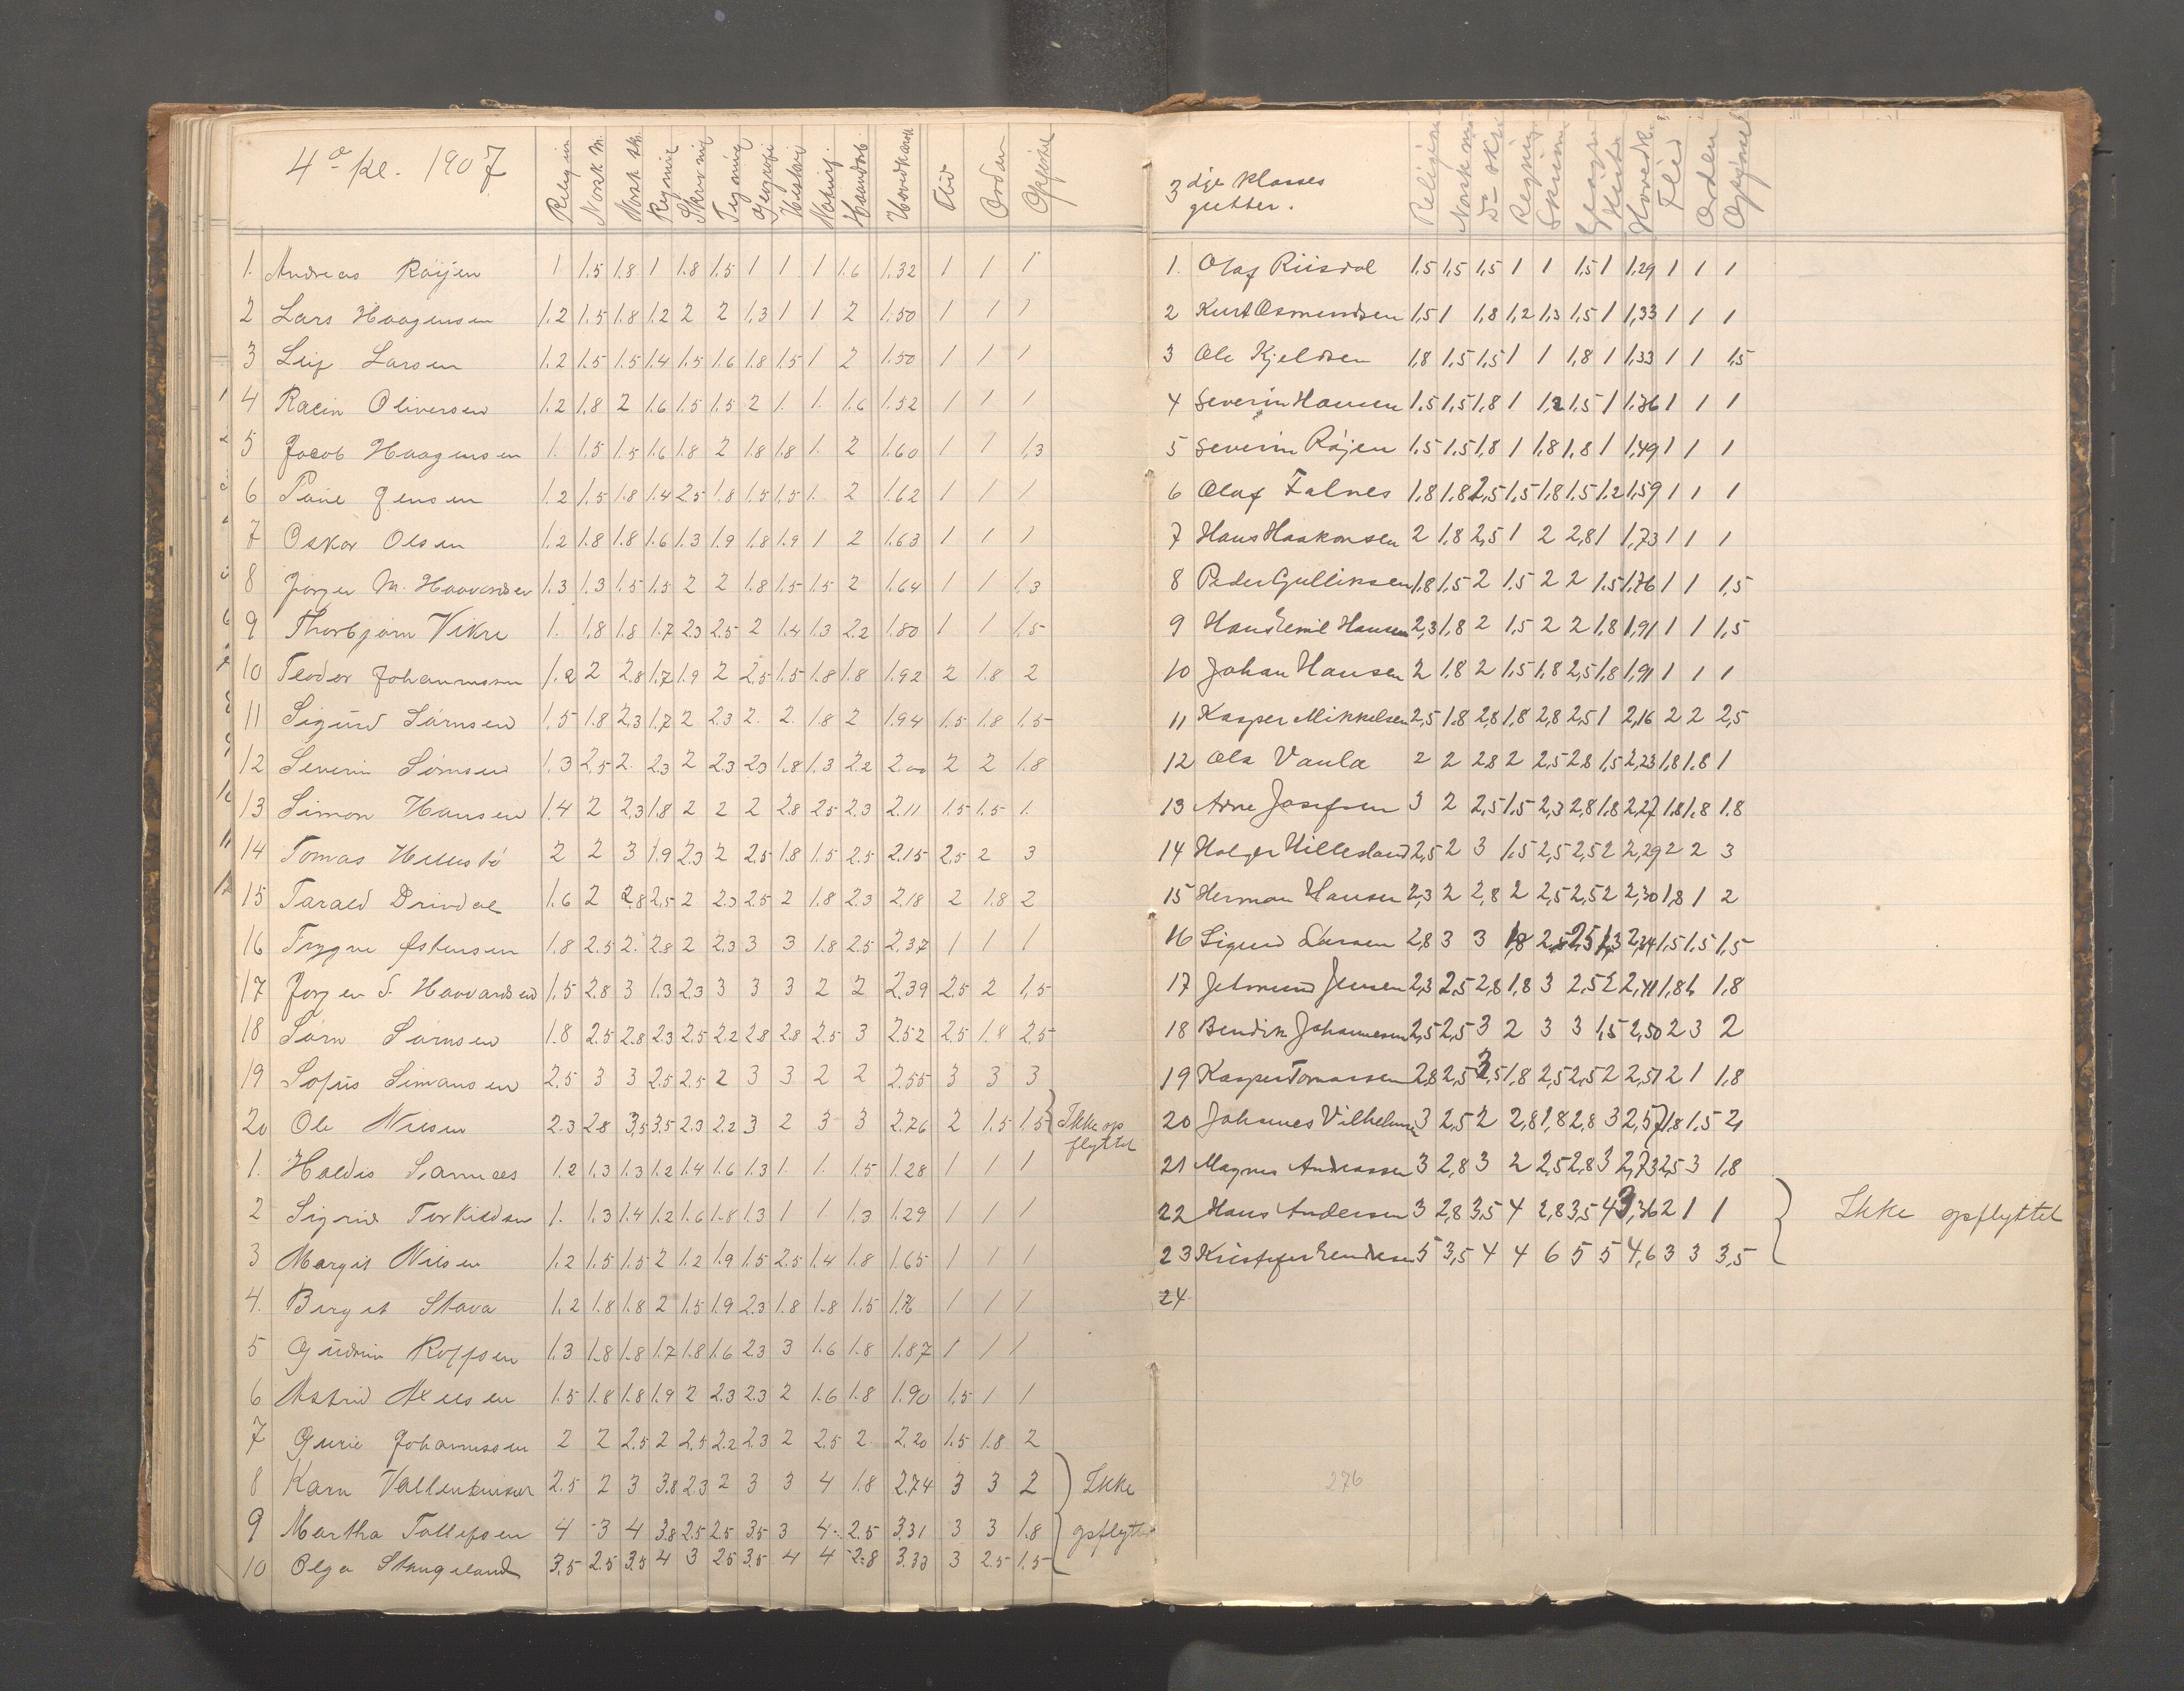 4a kl. 1907 Religion Norsk M. Norsk Sk. Regning Skrivning Tegning Geografi Historie Naturf. Haandarb. Hovedkarak Flid Orden Opførsel
1. Andreas Röijen 1 1.5 1.8 1 1.8 1.5 1 1 1 1.6 1.32 1 1 1
2 Lars Haagensen 1.2 1.5 1.8 1.2 2 2 1.3 1 1 2 1.50 1 1 1
3 Leif Larsen 1.2 1.5 1.5 1.4 1.5 1.6 1.8 1.5 1 2 1.50 1 1 1
1 4 Racin Oliversen 1.2 1.8 2 1.6 1.5 1.5 2 1. 1. 1.6 1.52 1 1 1
2 5 Jacob Haagensen 1. 1.5 1.5 1.6 1.8 2 1.8 1.8 1. 2 1.60 1 1 1,3
3 6 Paul Jensen 1.2 1.5 1.8 1.4 2.5 1.8 1.5 1.5 1. 2 1.62 1 1 1
4 7 Oskar Olsen 1.2 1.8 1.8 1.6 1.3 1.9 1.8 1.9 1 2 1.63 1 1 1
5 8 Jörgen M. Haavardsen 1.3 1.3 1.5 1.5 2 2 1.8 1.5 1.5 2 1.64 1 1 1,3
6 9 Thorbjörn Vikre 1. 1.8 1.8 1.7 2.3 2.5 2 1.4 1.3 2.2 1.80 1 1 1,5
7 10 Teodor Johannessen 1.2 2 2.8 1.7 1.9 2 2.5 1.5 1.8 1.8 1.92 2 1.8 2
8 11 Sigurd Sörnsen 1.5 1.8 2.3 1.7 2 2.3 2. 2. 1.8 2 1.94 1.5 1.8 1.5
9 12 Severin Sörnsen 1.3 2.5 2. 2.3 2 2.3 2.3 1.8 1.3 2.2 2.00 2 2 1.8
10 13 Simon Hansen 1.4 2 2.3 1.8 2 2 2 2.8 2.5 2.3 2.11 1.5 1.5 1.
11 14 Tomas Hellestö 2 2 3 1.9 2.3 2 2.5 1.8 1.5 2.5 2.15 2.5 2 3
12 15 Tarald Drivdal 1.6 2 2.8 2.5 2 2.3 2.5 2 1.8 2.3 2.18 2 1.8 2
16 Trygve Østensen 1.8 2.5 2. 2.8 2 2.3 3 3 1.8 2.5 2.37 1 1 1
17 Jörgen S. Haavardsen 1.5 2.8 3 1.3 2.3 3 3 3 2 2 2.39 2.5 2 1,5
18 Sörn Sörnsen 1.8 2.5 2.8 2.3 2.5 2.2 2.8 2.8 2.5 3 2.52 2.5 1.8 2.5
19 Sofus Simonsen 2.5 3 3 2.5 2.5 2 3 3 2 2 2.55 3 3 3
20 Ole Nilsen 2.3 2.8 3,5 3.5 2.3 2.2 3 2 3 3 2.76 2 1.5 1.5 Ikke op
flyttet
1. Haldis Samues 1.2 1.3 1.3 1.2 1.4 1.6 1.3 1. 1. 1.5 1.28 1 1 1
2 Sigrid Torkildsen 1. 1.3 1.4 1.2 1.6 1.8 1.3 1 1. 1.3 1.29 1 1 1
3 Margit Nilsen 1.2 1.5 1.5 2 1.2 1.9 1.5 2.5 1.4 1.8 1.65 1 1 1
4. Birgit Stava 1.2 1.8 1.8 2 1.5 1.9 2.3 1.8 1.8 1.5 1.76 1 1 1
5 Gudrun Roffsen 1.3 1.8 1.8 1.7 1.8 1.6 2.3 3 1.6 1.8 1.87 1 1 1
6 Astrid Axelsen 1.5 1.8 1.8 1.9 2 2.3 2.3 2 1.6 1.8 1.90 1.5 1 1
7 Gurie Johannessen 2 2 2.5 2 2.5 2.2 2.3 2 2.5 2 2.20 1.5 1.8 2
8 Karn Vallentinsen 2.5 2 3 3.8 2.3 2 3 3 4 1.8 2.74 3 3 2 Ikke
9 Martha Tollefsen 4 3 4 3.8 2.5 2.5 3.5 3 4 2.5 3.31 3 3 1.8 opflyttet
10 Olga Stangeland 3.5 2.5 3.5 4 3 2.5 3.5 4 4 2.8 3.33 3 2.5 1.5
3 dje klasses
gutter. Religion Norsk m. Do skr. Regning Skrivn Geogr Histo Hovedk. Flid Orden Opførsel
1. Olaf Riisdal 1,5 1,5 1,5 1 1 1,5 1 1,29 1 1 1
2 Kurt Osmundsen 1,5 1 1,8 1,2 1,3 1,5 1 1,33 1 1 1
3 Ole Kjeldsen 1,8 1,5 1,5 1 1 1,8 1 1,33 1 1 1,5
4 Severin Hansen 1,5 1,5 1,8 1 1,2 1,5 1 1,36 1 1 1
5 Severin Röjen 1,5 1,5 1,8 1 1,8 1,8 1 1,49 1 1 1
6 Olaf Falnes 1,8 1,8 2,5 1,5 1,8 1,5 1,2 1,59 1 1 1
7 Hans Haakonsen 2 1,8 2,5 1 2 2,8 1 1,73 1 1 1
8 Peder Gulliksen 1,8 1,5 2 1,5 2 2 1.5 1,76 1 1 1,5
9 Hans Emil Hansen 2,3 1,8 2 1,5 2 2 1,8 1,91 1 1 1,5
10 Johan Hansen 2 1,8 2 1,5 1,8 2,5 1,8 1,91 1 1 1
11 Kasper Mikkelsen 2,5 1,8 2,8 1,8 2,8 2,5 1 2,16 2 2 2,5
12 Ola Vaula 2 2 2,8 2 2,5 2,8 1,5 2,23 1,8 1,8 1
13 Arne Josefsen 3 2 2,5 1,5 2,3 2,8 1,8 2,27 1,8 1,8 1.8
14 Holger Hillesland 2,5 2 3 1,5 2,5 2,5 2 2,29 2 2 3
15 Herman Hansen 2,3 2 2,8 2 2,5 2,5 2 2,30 1,8 1 2
16 Sigurd Larsen 2,8 3 3 1,8 2,5 2,5 1,3 2,34 1,5 1,5 1,5
17 Jetmund Jensen 2,3 2,5 2,8 1,8 3 2,5 2 2,41 1,8 1, 1,8
18 Bendik Johannesen 2,5 2,5 3 2 3 3 1,5 2,50 2 3 2
19 Kasper Tomassen 2,8 2,5 3,5 1,8 2,5 2,5 2 2,51 2 1 1,8
20 Johannes Vilhelmsen 3 2,5 2 2,8 1,8 2,8 3 2,57 1,8 1,5 2
21 Magnus Andreassen 3 2,8 3 2 2,5 2,8 3 2,73 2,5 3 1,8
22 Hans Andersen 3 2,8 3,5 4 2,8 3,5 4 3,36 2 1 1 Ikke opflyttet
23 Kristofer Endresen 5 3,5 4 4 6 5 5 4,6 3 3 3,5
24
276